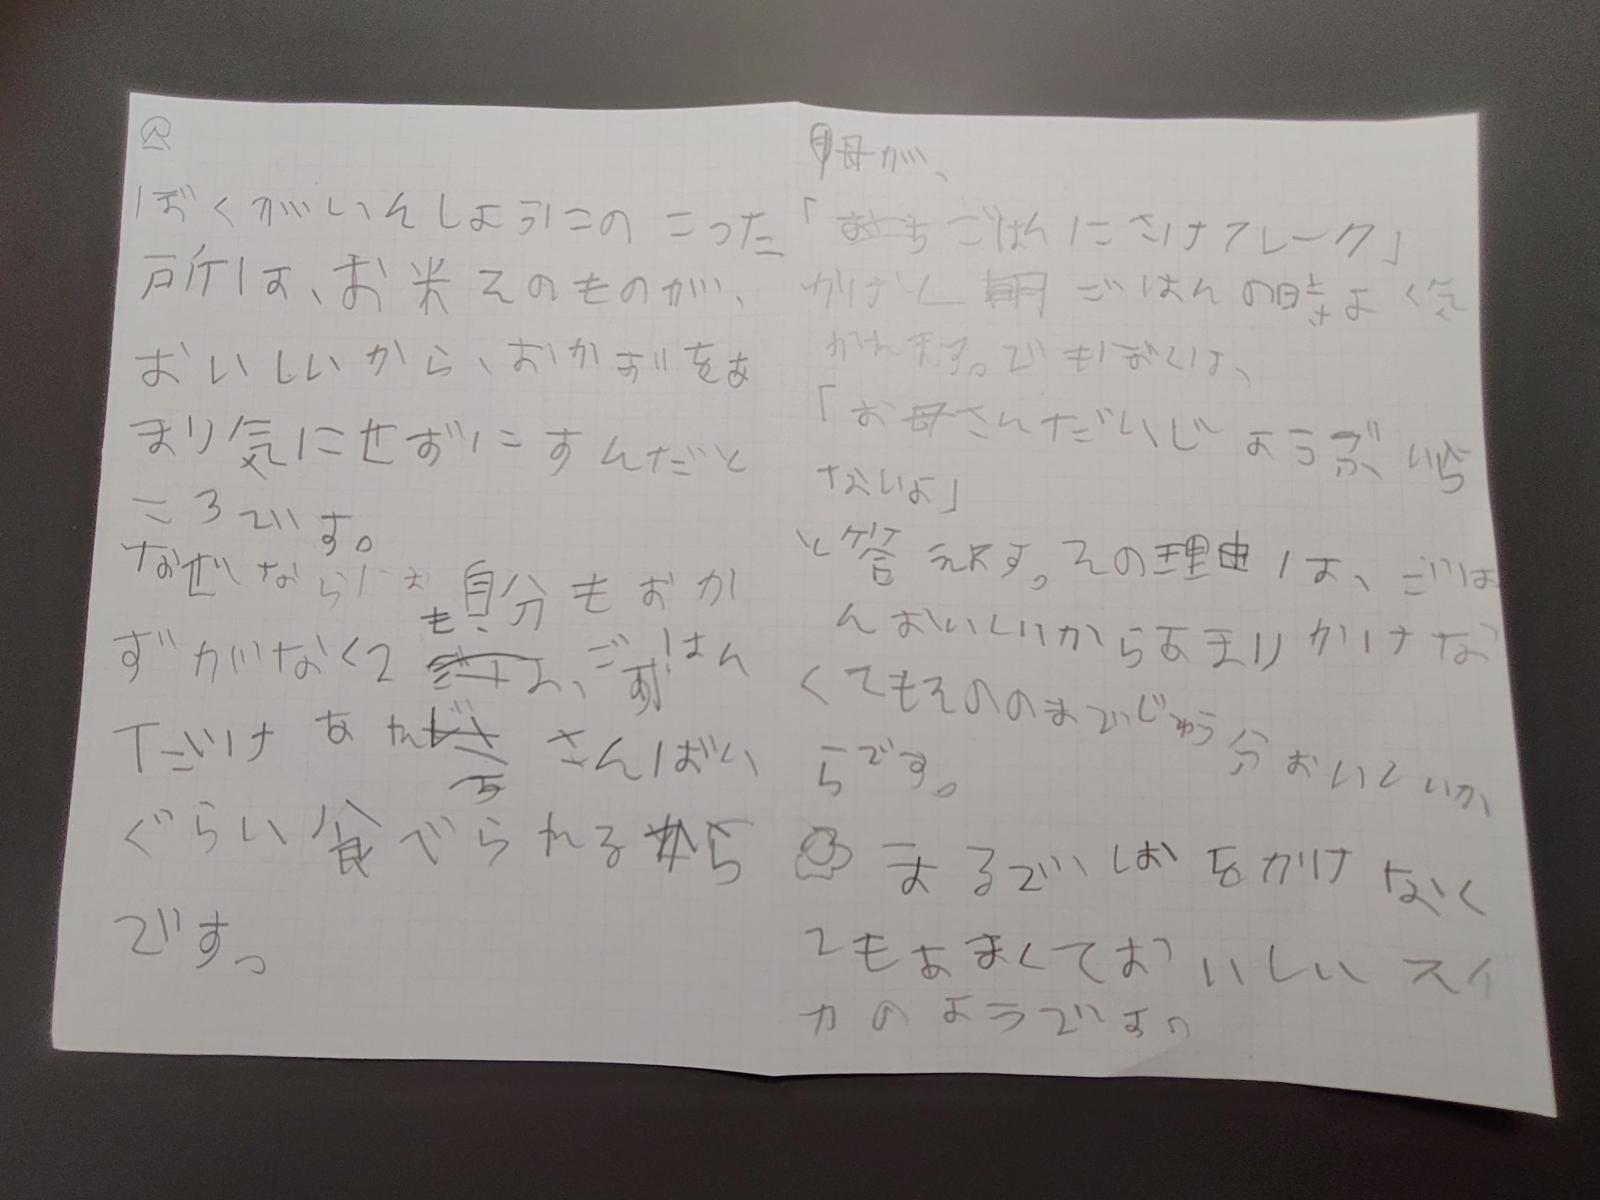 ぼくがいんしょうにのこった
所は、お米そのものが、
おいしいから、おかずをあ
まり気にせずにすんだと
ころです。
なぜなら、自分もおか
ずがなくても、ごはん
だけあれば さんばい
ぐらい食べられるから
です。
母が、
「ごはんにさけフレーク」
かけると朝ごはんの時よく気
かれます。でもぼくは、
「お母さんだいじょうぶいら
ないよ」
と答えます。その理由は、ごは
んおいしいからあまりかけな
くてもそのままでじゅう分おいしいか
らです。
まるでしおをかけなく
てもあまくておいしいスイ
カのようです。